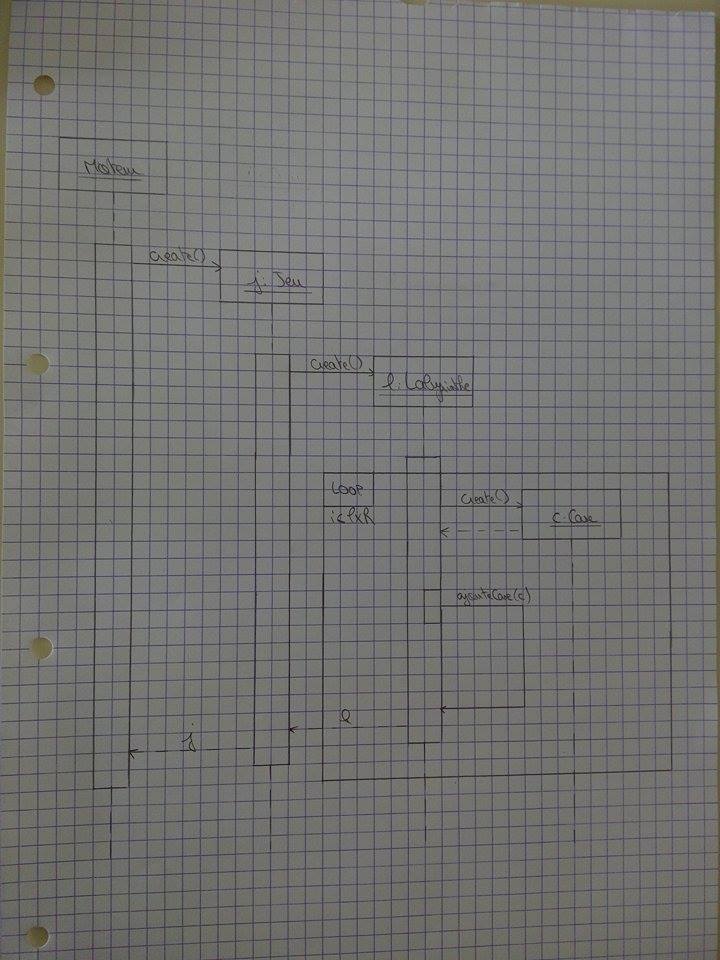 Moteur
create()
j: Jeu
create()
l: Labyrinthe
LOOP
i<lxR
create()
c: Case
ajouteCase(c)
l
j